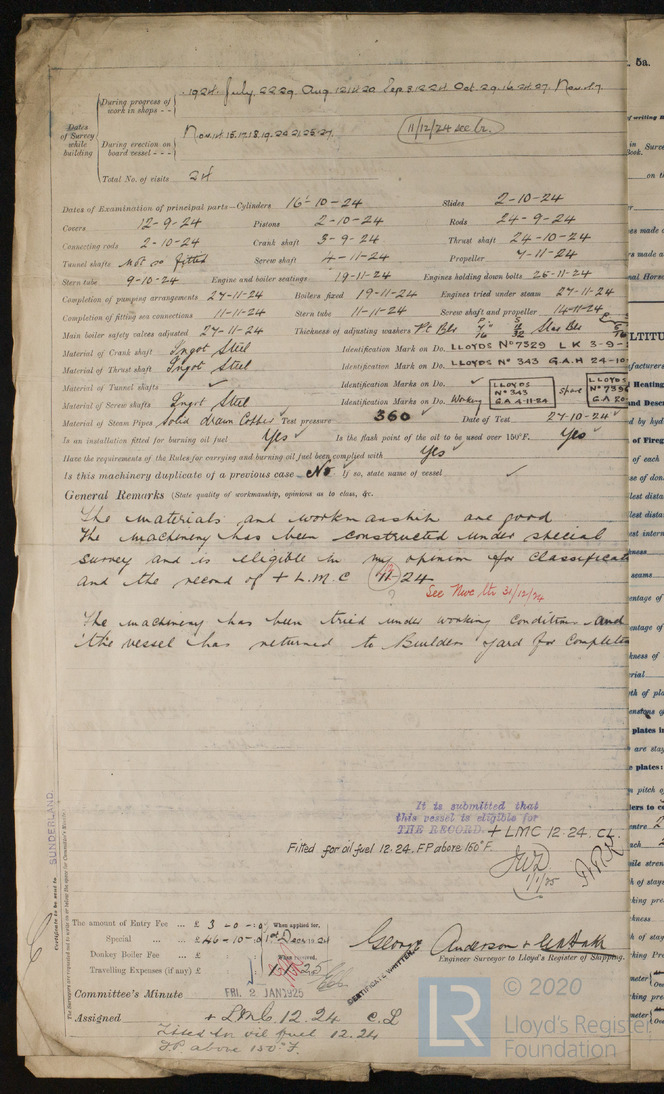 5a.
During progress of work in shops - - 1924. July. 22.29. Aug. 12.14.20. Sep 3.12.24. Oct. 2.9.16.24.27. Nov. 4.7.
Dates of Survey while building
During erection on board vessel - - - Nov. 14.15.17.18.19.20.21.25.27. 11/12/24 see ltr.
Total No. of visits 24
Dates of Examination of principal parts—Cylinders 16-10-24 Slides 2-10-24
Covers 12-9-24 Pistons 2-10-24 Rods 24-9-24
Connecting rods 2-10-24 Crank shaft 3-9-24 Thrust shaft 24-10-24
Tunnel shafts Not so fitted Screw shaft 4-11-24 Propeller 7-11-24
Stern tube 9-10-24 Engine and boiler seatings 19-11-24 Engines holding down bolts 25-11-24
Completion of pumping arrangements 27-11-24 Boilers fixed 19-11-24 Engines tried under steam 27-11-24
Completion of fitting sea connections 11-11-24 Stern tube 11-11-24 Screw shaft and propeller 14-11-24
Main boiler safety valves adjusted 27-11-24 Thickness of adjusting washers
Material of Crank shaft Ingot Steel Identification Mark on Do. LLOYDS No 7329 LK 3-9-
Material of Thrust shaft Ingot Steel Identification Mark on Do. LLOYDS No 343 G.A.H 24-10
Material of Tunnel shafts Identification Marks on Do.
Material of Screw shafts Ingot Steel Identification Marks on Do. Working LLOYDS No 343 G.A 4-11-24 Spare LLOYDS
Material of Steam Pipes Solid drawn Copper Test pressure 360 Date of Test 27-10-24
Is an installation fitted for burning oil fuel Yes Is the flash point of the oil to be used over 150°F. Yes
Have the requirements of the Rules for carrying and burning oil fuel been complied with Yes
Is this machinery duplicate of a previous case No If so, state name of vessel
General Remarks (State quality of workmanship, opinions as to class, &c.
The materials and workmanship are good
The machinery has been constructed under special
survey and is eligible in my opinion for classificat
and the record of + L.M.C 11-24
See Nwc ltr 31/12/24
The machinery has been tried under working condition and
the vessel has returned to Builders yard for complet
It is submitted that
this vessel is eligible for
THE RECORD. + LMC 12.24. CL.
Fitted for oil fuel 12.24. F.P above 150°F.
1/1/25
SUNDERLAND.
Certificate to be sent to
The amount of Entry Fee ... £ 3 - 0 - 0 When applied for,
Special ... ... £ 46-10-0
Donkey Boiler Fee ... £ When received,
Travelling Expenses (if any) £
George Anderson + GA Hall
Engineer Surveyor to Lloyd's Register of Shipping.
CERTIFICATE WRITTEN
Committee's Minute FRI. 2 JAN 1925
Assigned + LMC 12.24 C.L
Fitted for oil fuel 12.24
FP above 150°F.
LR
© 2020
Lloyd's Register
Foundation